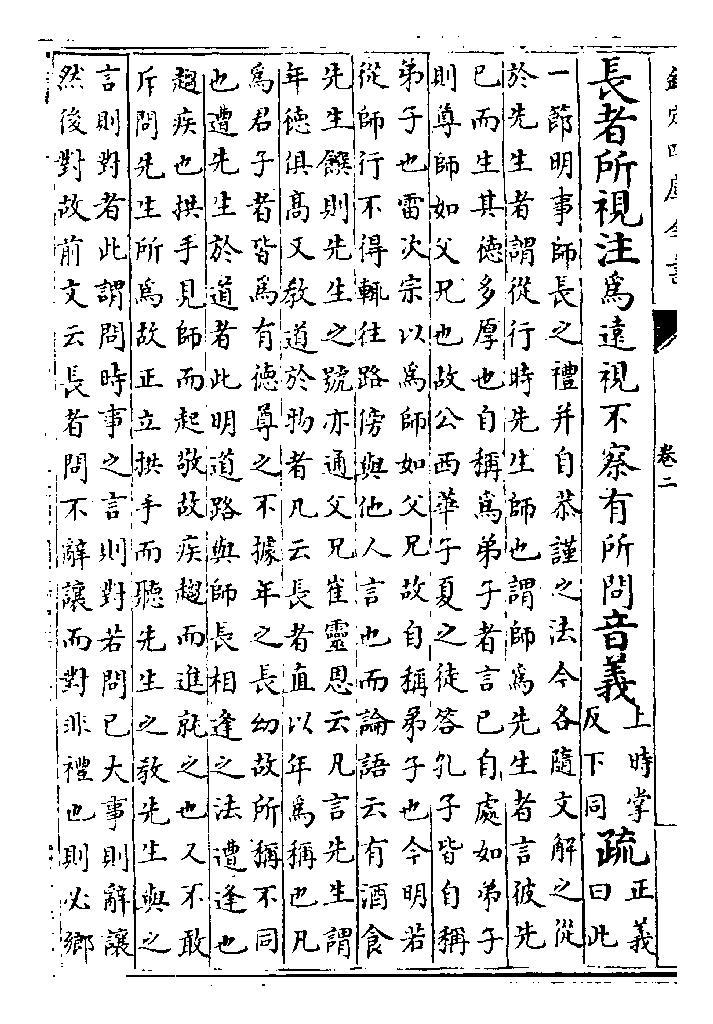 欽定四庫全書
卷二
長者所視注為遠視不察有所問音義上時掌反下同疏正義曰此
一節明事師長之禮并自恭謹之法今各隨文解之從
於先生者謂從行時先生師也謂師為先生者言彼先
已而生其德多厚也自稱為弟子者言已自處如弟子
則尊師如父兄也故公西華子夏之徒答孔子皆自稱
弟子也雷次宗以為師如父兄故自稱弟子也今明若
從師行不得輒往路傍與他人言也而論語云有酒食
先生饌則先生之號亦通父兄崔靈恩云凡言先生謂
年德俱高又教道於物者凡云長者直以年為稱也凡
為君子者皆為有德尊之不據年之長幼故所稱不同
也遭先生於道者此明道路與師長相逢之法遭逢也
趨疾也拱手見師而起敬故疾趨而進就之也又不敢
斥問先生所為故正立拱手而聽先生之教先生與之
言則對者此謂問時事之言則對若問已大事則辭讓
然後對故前文云長者問不辭讓而對非禮也則必鄉